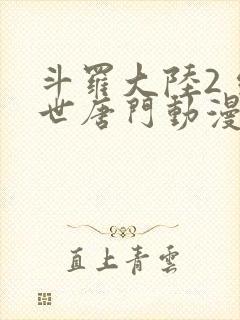 斗羅大陸2
世唐門動漫
直上青雲